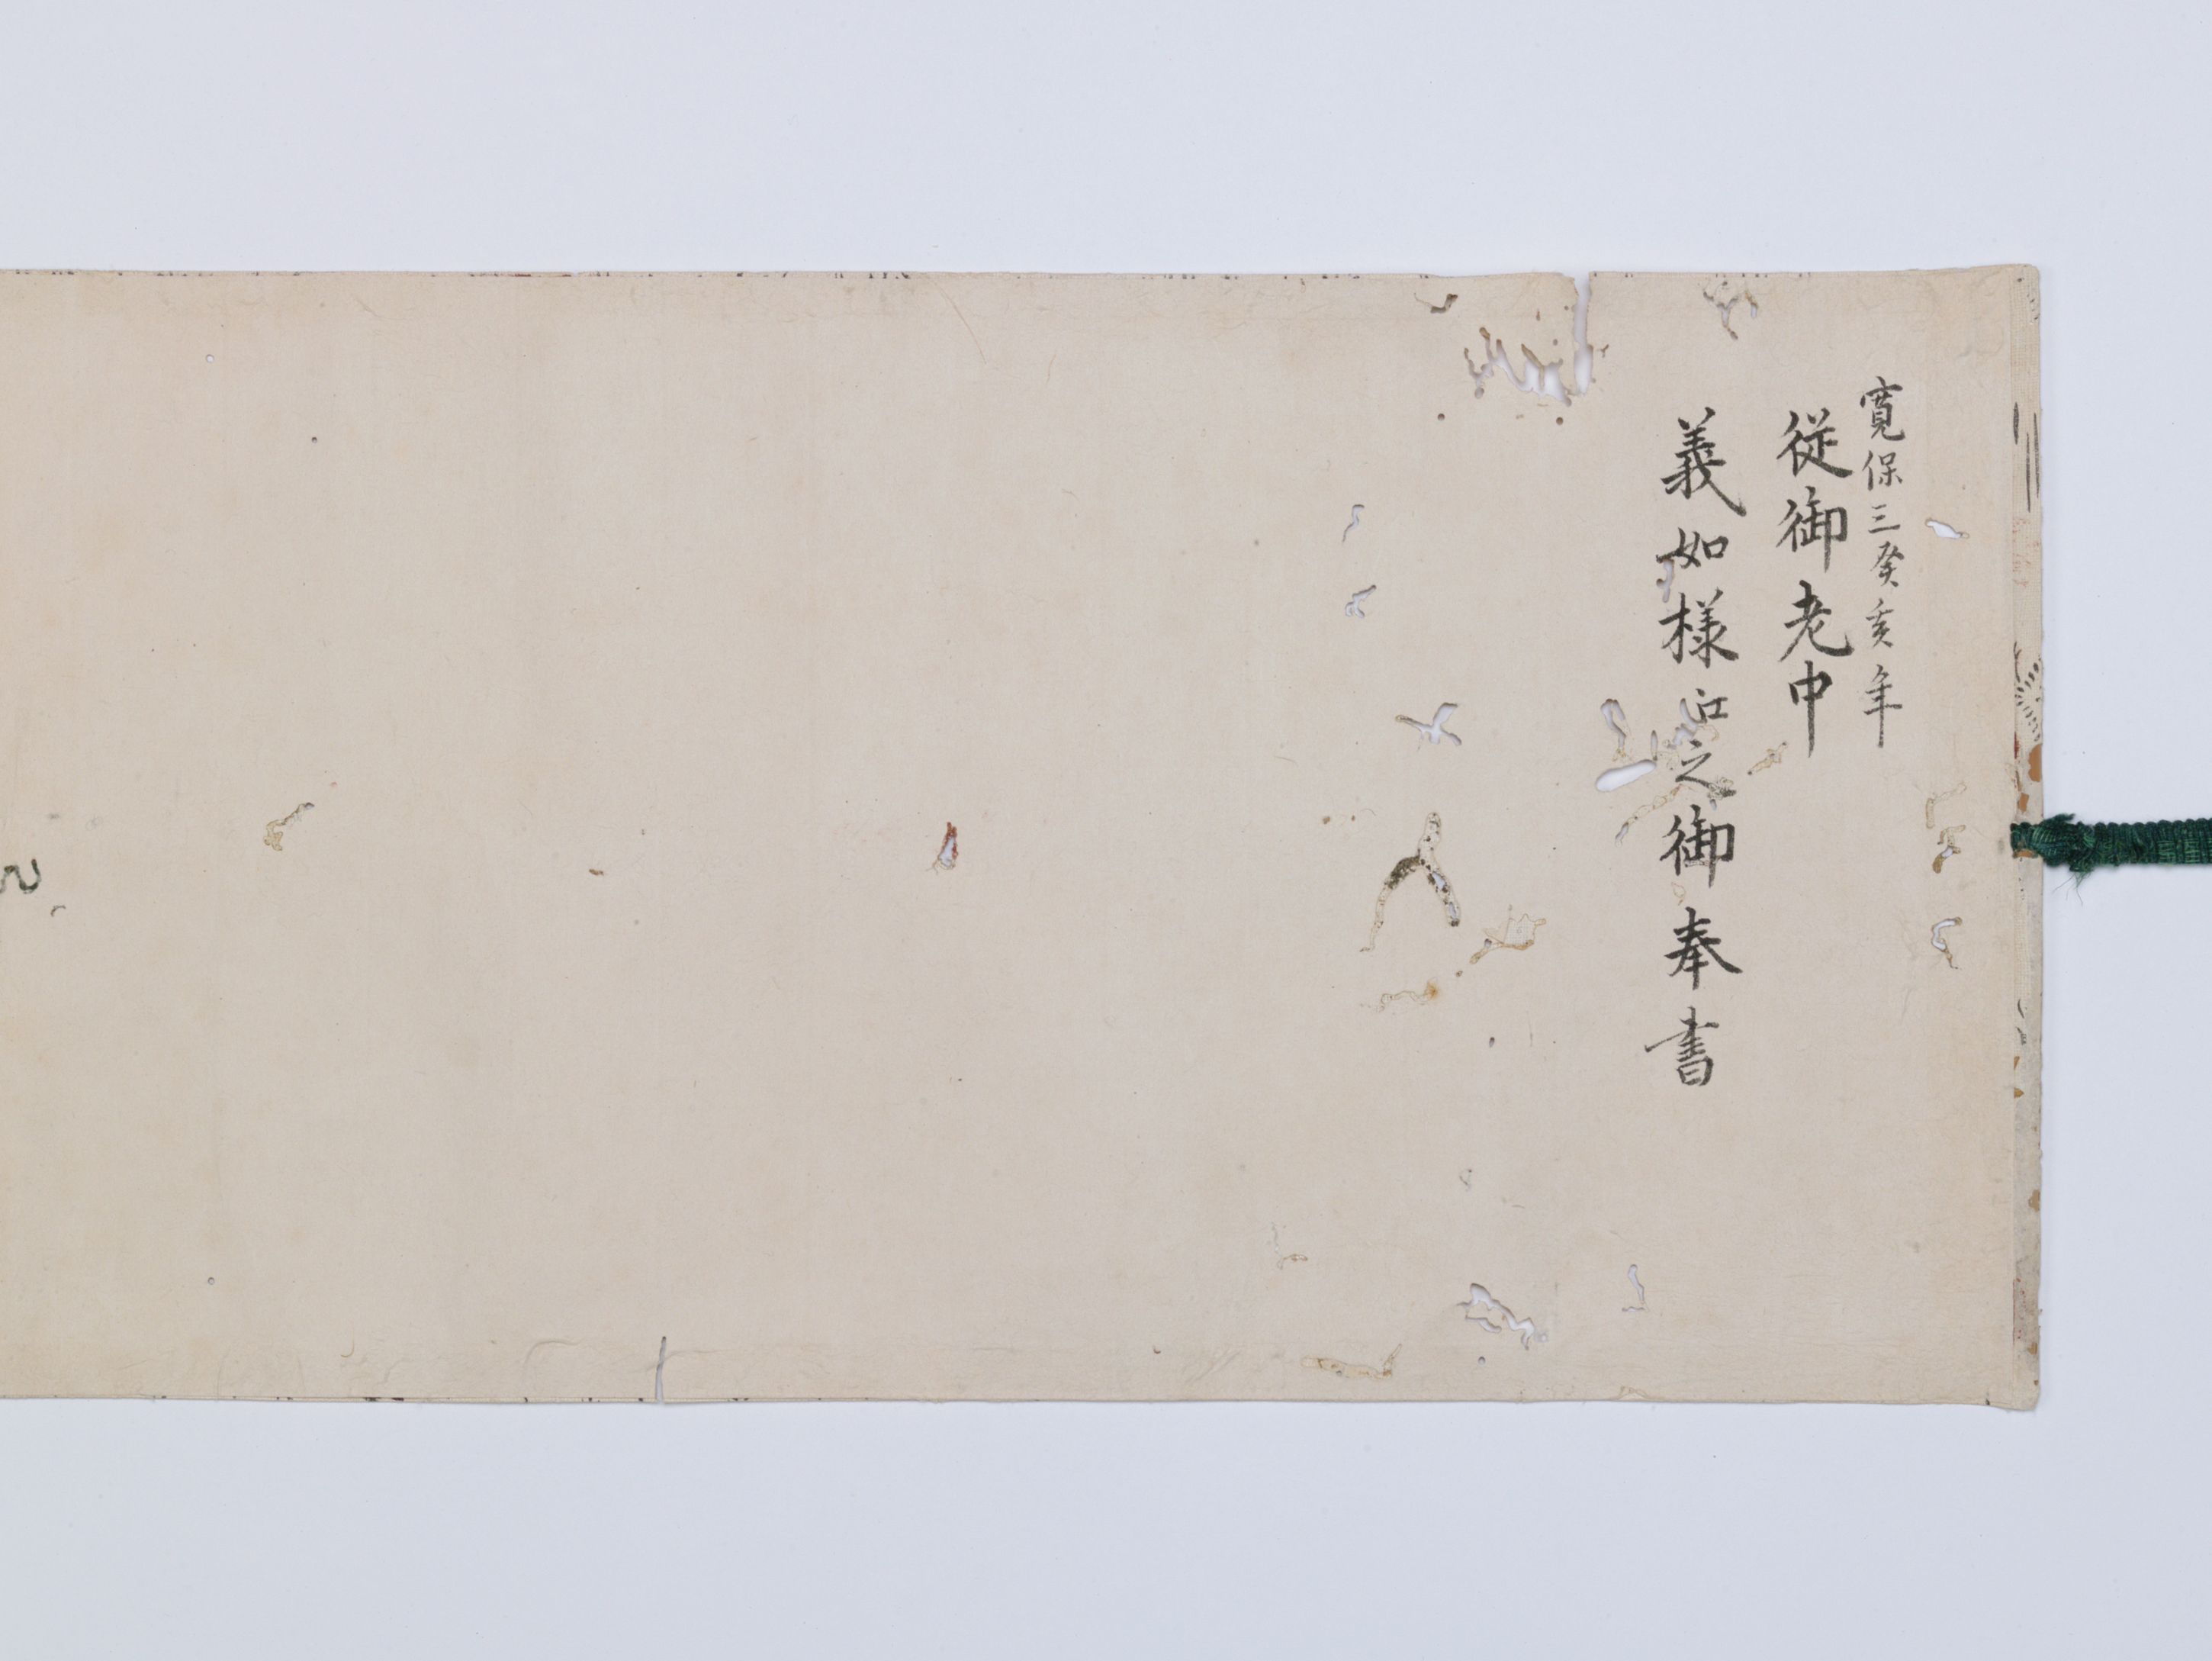 寛保三癸亥年
従御老中
義如様江之御奉書